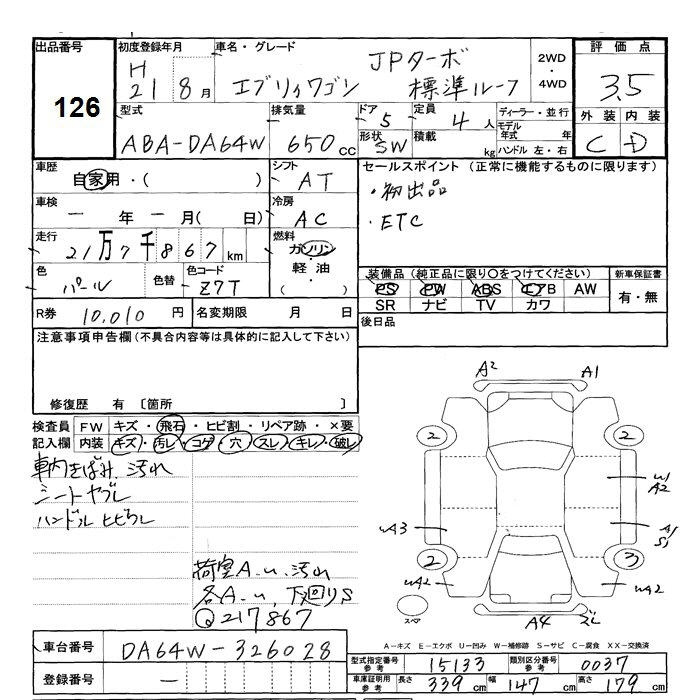 出品番号
126
初度登録年月
H
21 8月
車名・グレード
エブリィワゴン
JPターボ
標準ルーフ
2WD
・
4WD
評価点
3.5
外装 内装
C D
型式
ABA-DA64W
排気量
650cc
ドア
5
定員
4人
形状
SW
積載
kg
ディーラー・並行
モデル年式 年
ハンドル 左・右
車歴
自家用・( )
シフト
AT
車検
ー年ー月( 日)
冷房
AC
走行
21万7千867km
燃料
ガソリン
・
軽油
( )
色
パール
色替
色コード
Z7T
R券 10,010円
名変期限 月 日
セールスポイント(正常に機能するものに限ります)
・初出品
・ETC
装備品(純正品に限り○をつけてください)
PS PW ABS エアB AW
SR ナビ TV カワ
新車保証書
有・無
後日品
注意事項申告欄(不具合内容等は具体的に記入して下さい)
修復歴 有〔箇所 〕
検査員記入欄
FW キズ・飛石・ヒビ割・リペア跡・×要
内装 キズ・汚レ・コゲ・穴・スレ・キレ・破レ
車内きばみ、汚れ
シートヤブレ
ハンドルヒビワレ
荷室A.u、汚れ
各A.u、下廻りS
Q217867
A2 A1
2 2
W1
A2
UA3
A1
S1
2 3
UA2 UA2
スペア
A4 ズレ
A-キズ E-エクボ U-凹み W-補修跡 S-サビ C-腐食 XX-交換済
車台番号 DA64W-326028
登録番号 ー
型式指定番号 参考 15133
類別区分番号 参考 0037
車庫証明用 参考 長さ 339cm 幅 147cm 高さ 179cm